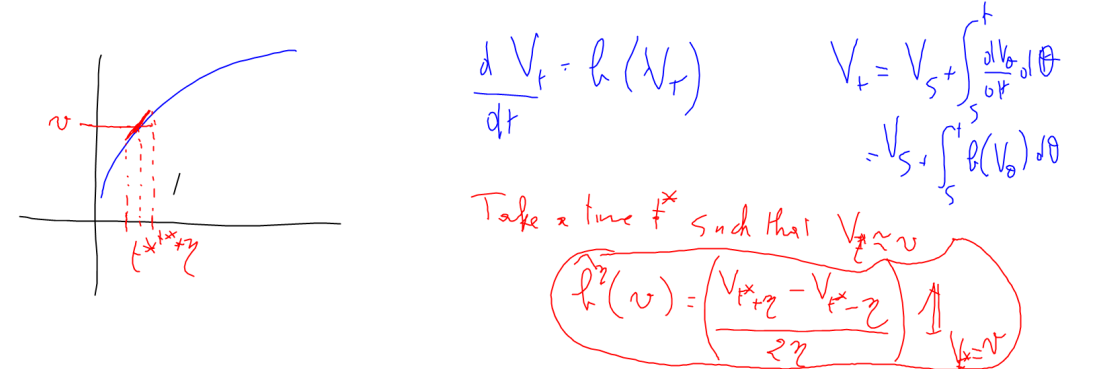 d V_t / dt = b(V_t)
V_t = V_s + ∫_s^t dV_θ/dt dθ
= V_s + ∫_s^t b(V_θ) dθ
v
Take a time t* such that V_t* ≃ v
t* t*+η
b̂^η(v) = ( (V_{t*+η} − V_{t*−η}) / 2η ) 𝟙_{V_t* = v}